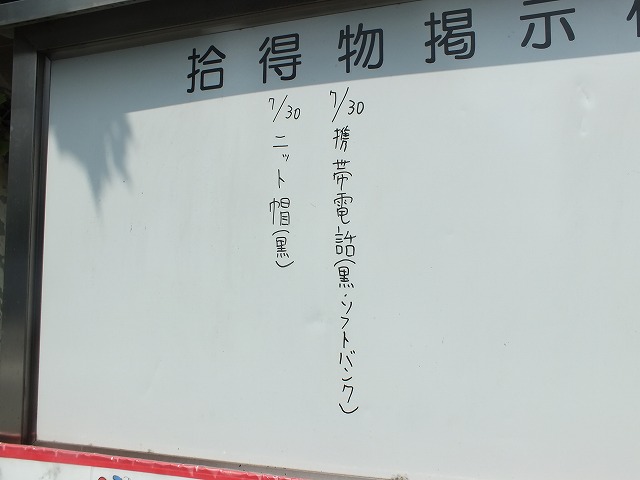 拾得物掲示
7/30 携帯電話(黒・ソフトバンク)
7/30 ニット帽(黒)